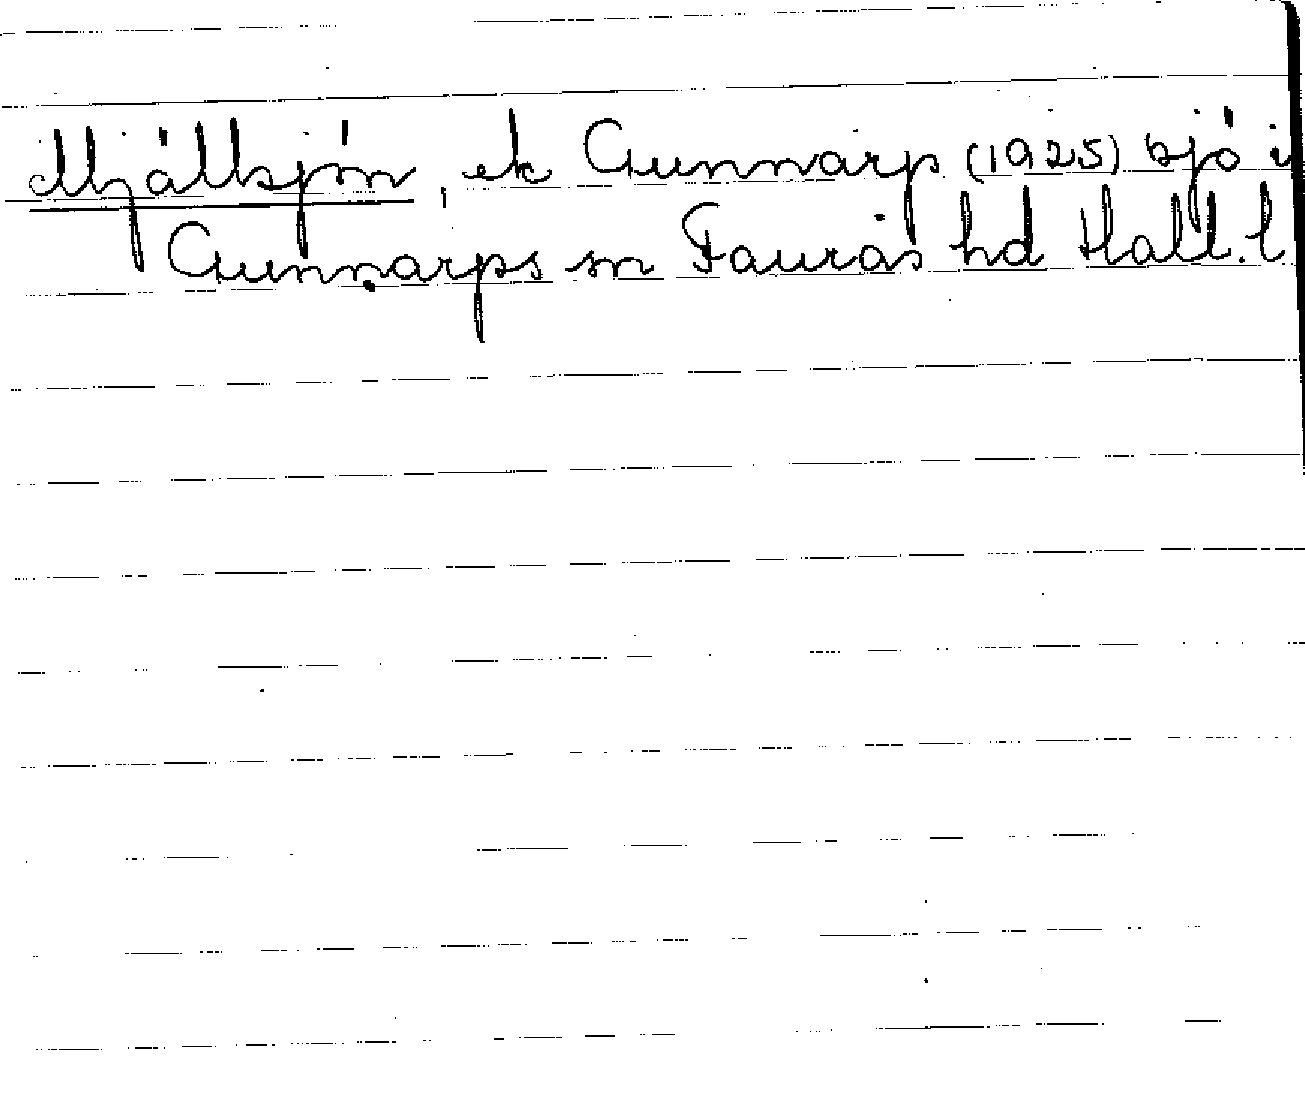 Mjällsjön, ek Gunnarp (1925) sjö i
Gunnarps sn Faurås hd Hall. l